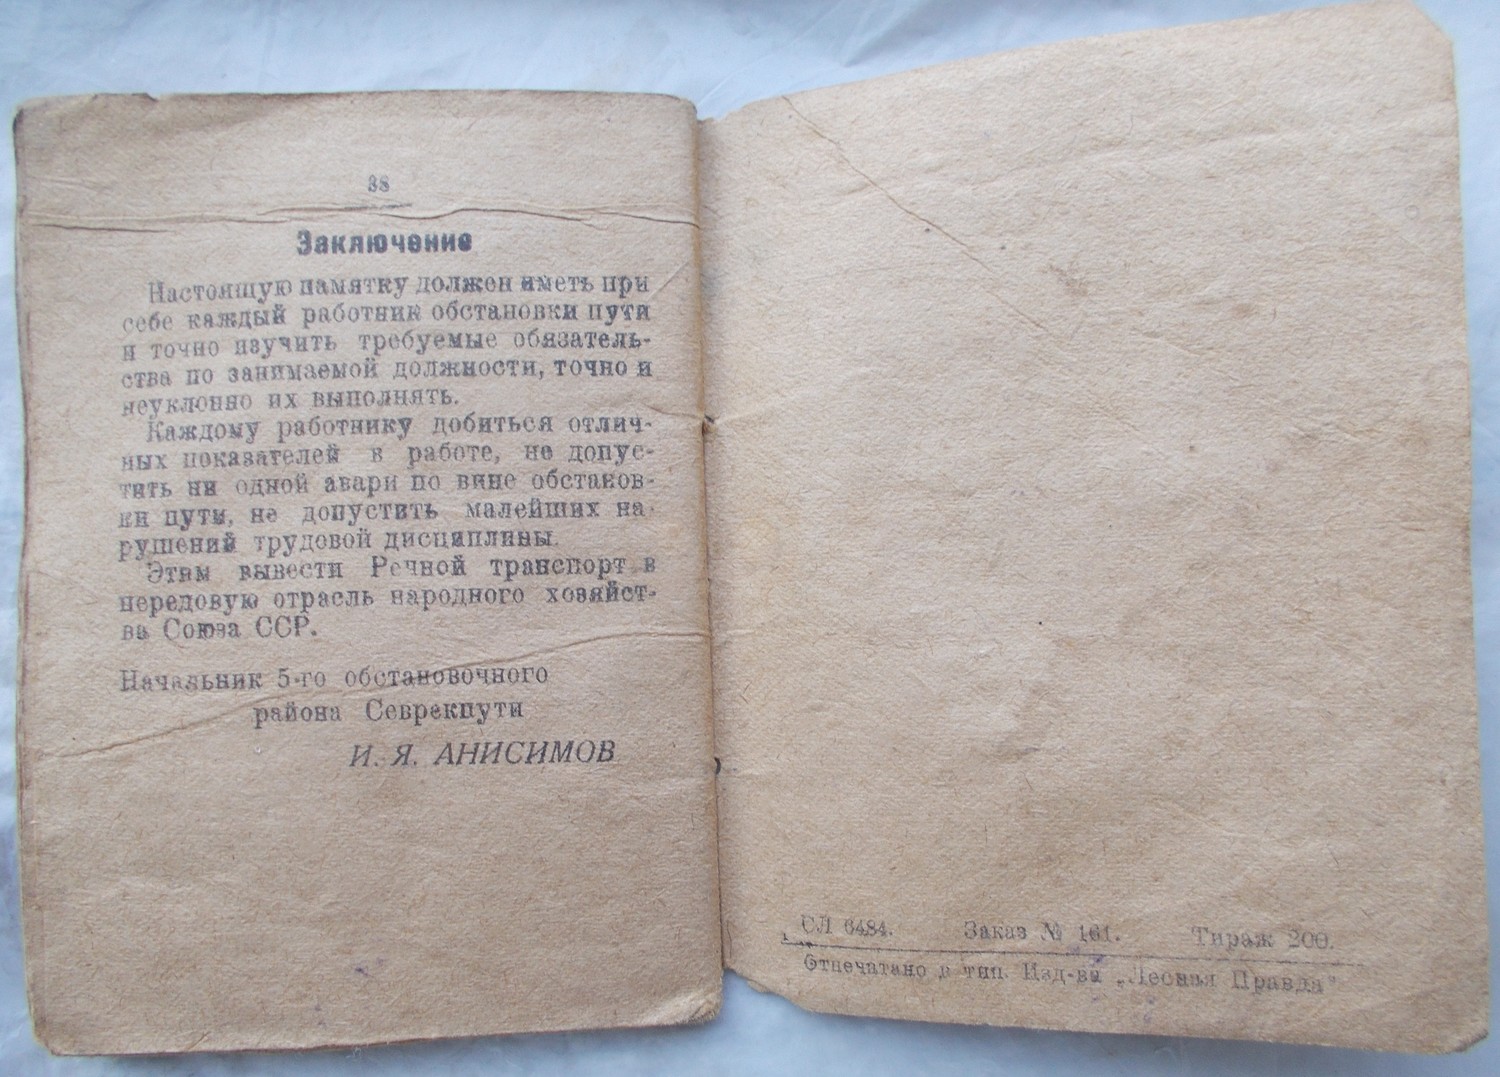 38
Заключение
Настоящую памятку должен иметь при
себе каждый работник обстановки пути
и точно изучить требуемые обязатель-
ства по занимаемой должности, точно и
неуклонно их выполнять.
Каждому работнику добиться отлич-
ных показателей в работе, не допус-
тить ни одной авари по вине обстанов-
ки пути, не допустить малейших на-
рушений трудовой дисциплины.
Этим вывести Речной транспорт в
передовую отрасль народного хозяйст-
ва Союза ССР.
Начальник 5-го обстановочного
района Севрекпути
И. Я. АНИСИМОВ
СЛ 6484. Заказ № 161. Тираж 200.
Отпечатано в тип. Изд-ва „Лесная Правда"